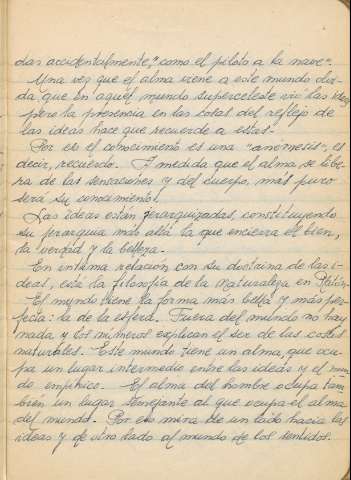 das accidentalmente, "como el piloto a la nave".
Una vez que el alma viene a este mundo olvi-
da que en aquél mundo superceleste vió las ideas
pero la presencia en las cosas del reflejo de
las ideas hace que recuerde a estas.
Por eso el conocimiento es una "anámesis", es
decir, recuerdo. A medida que el alma se libe-
ra de las sensaciones y del cuerpo, más puro
será su conocimiento.
Las ideas están gerarquizadas, constituyendo
su jerarquía más alta la que encierra el bien,
la verdad y la belleza.
En intima relación con su doctrina de las i-
deas, está la filosofía de la naturaleza en Platón.
El mundo tiene la forma más bella y más per-
fecta: la de la esfera. Fuera del mundo no hay
nada y los números explican el ser de las cosas
naturales. Este mundo tiene un alma, que ocu-
pa un lugar intermedio entre las ideas y el mun
do empírico. El alma del hombre ocupa tam-
bién un lugar semejante al que ocupa el alma
del mundo. Por eso mira de un lado hacia las
ideas y de otro lado al mundo de los sentidos.